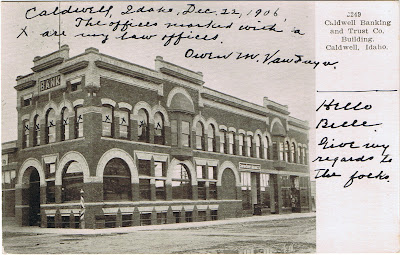 Caldwell, Idaho, Dec, 22, 1906
The offices marked with a
X are my law offices.
Owen M. Van Duyn.
BANK
X X X X X X X
2249
Caldwell Banking
and Trust Co.
Building.
Caldwell, Idaho.
Hello
Belle.
Give my
regards to
the folks.